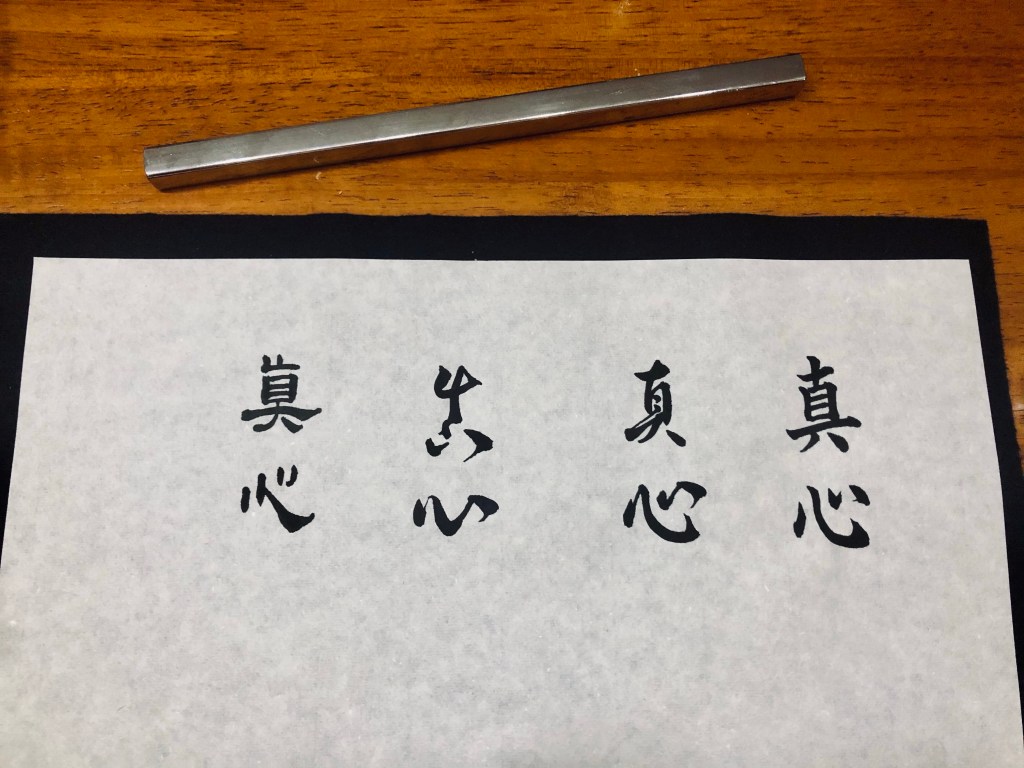 真心
真心
真心
真心